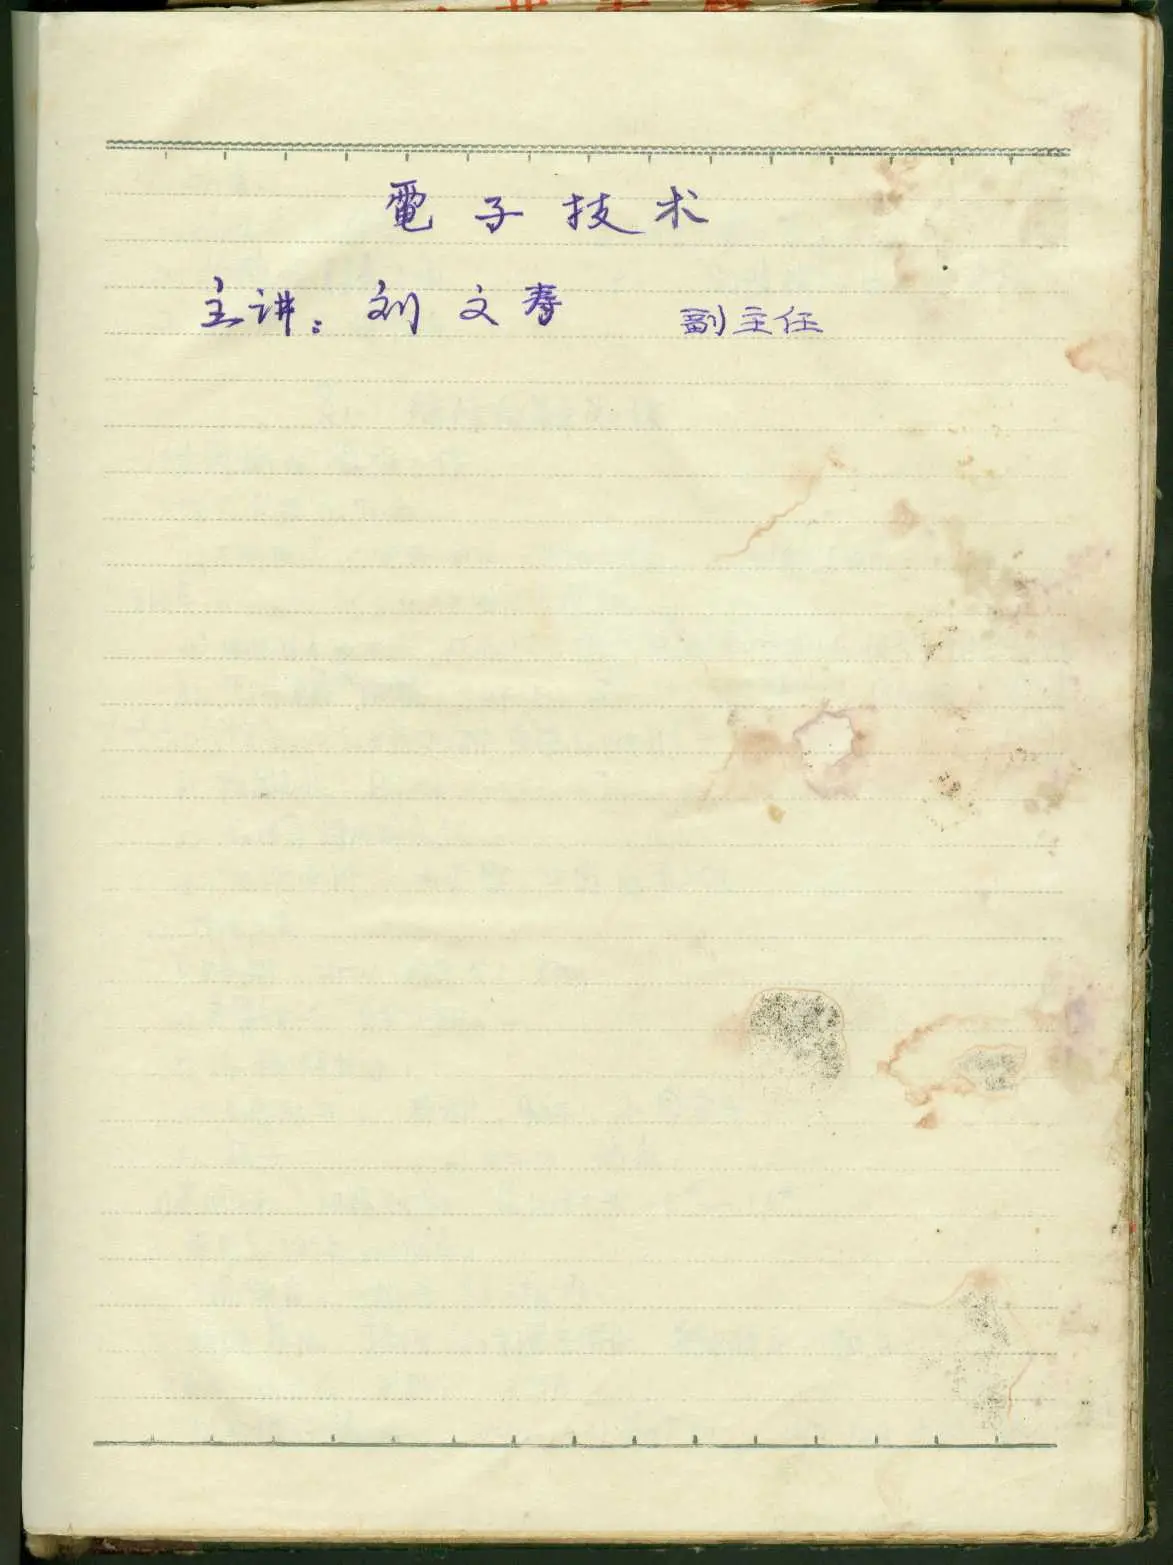 電子技术
主讲：刘文寿 副主任